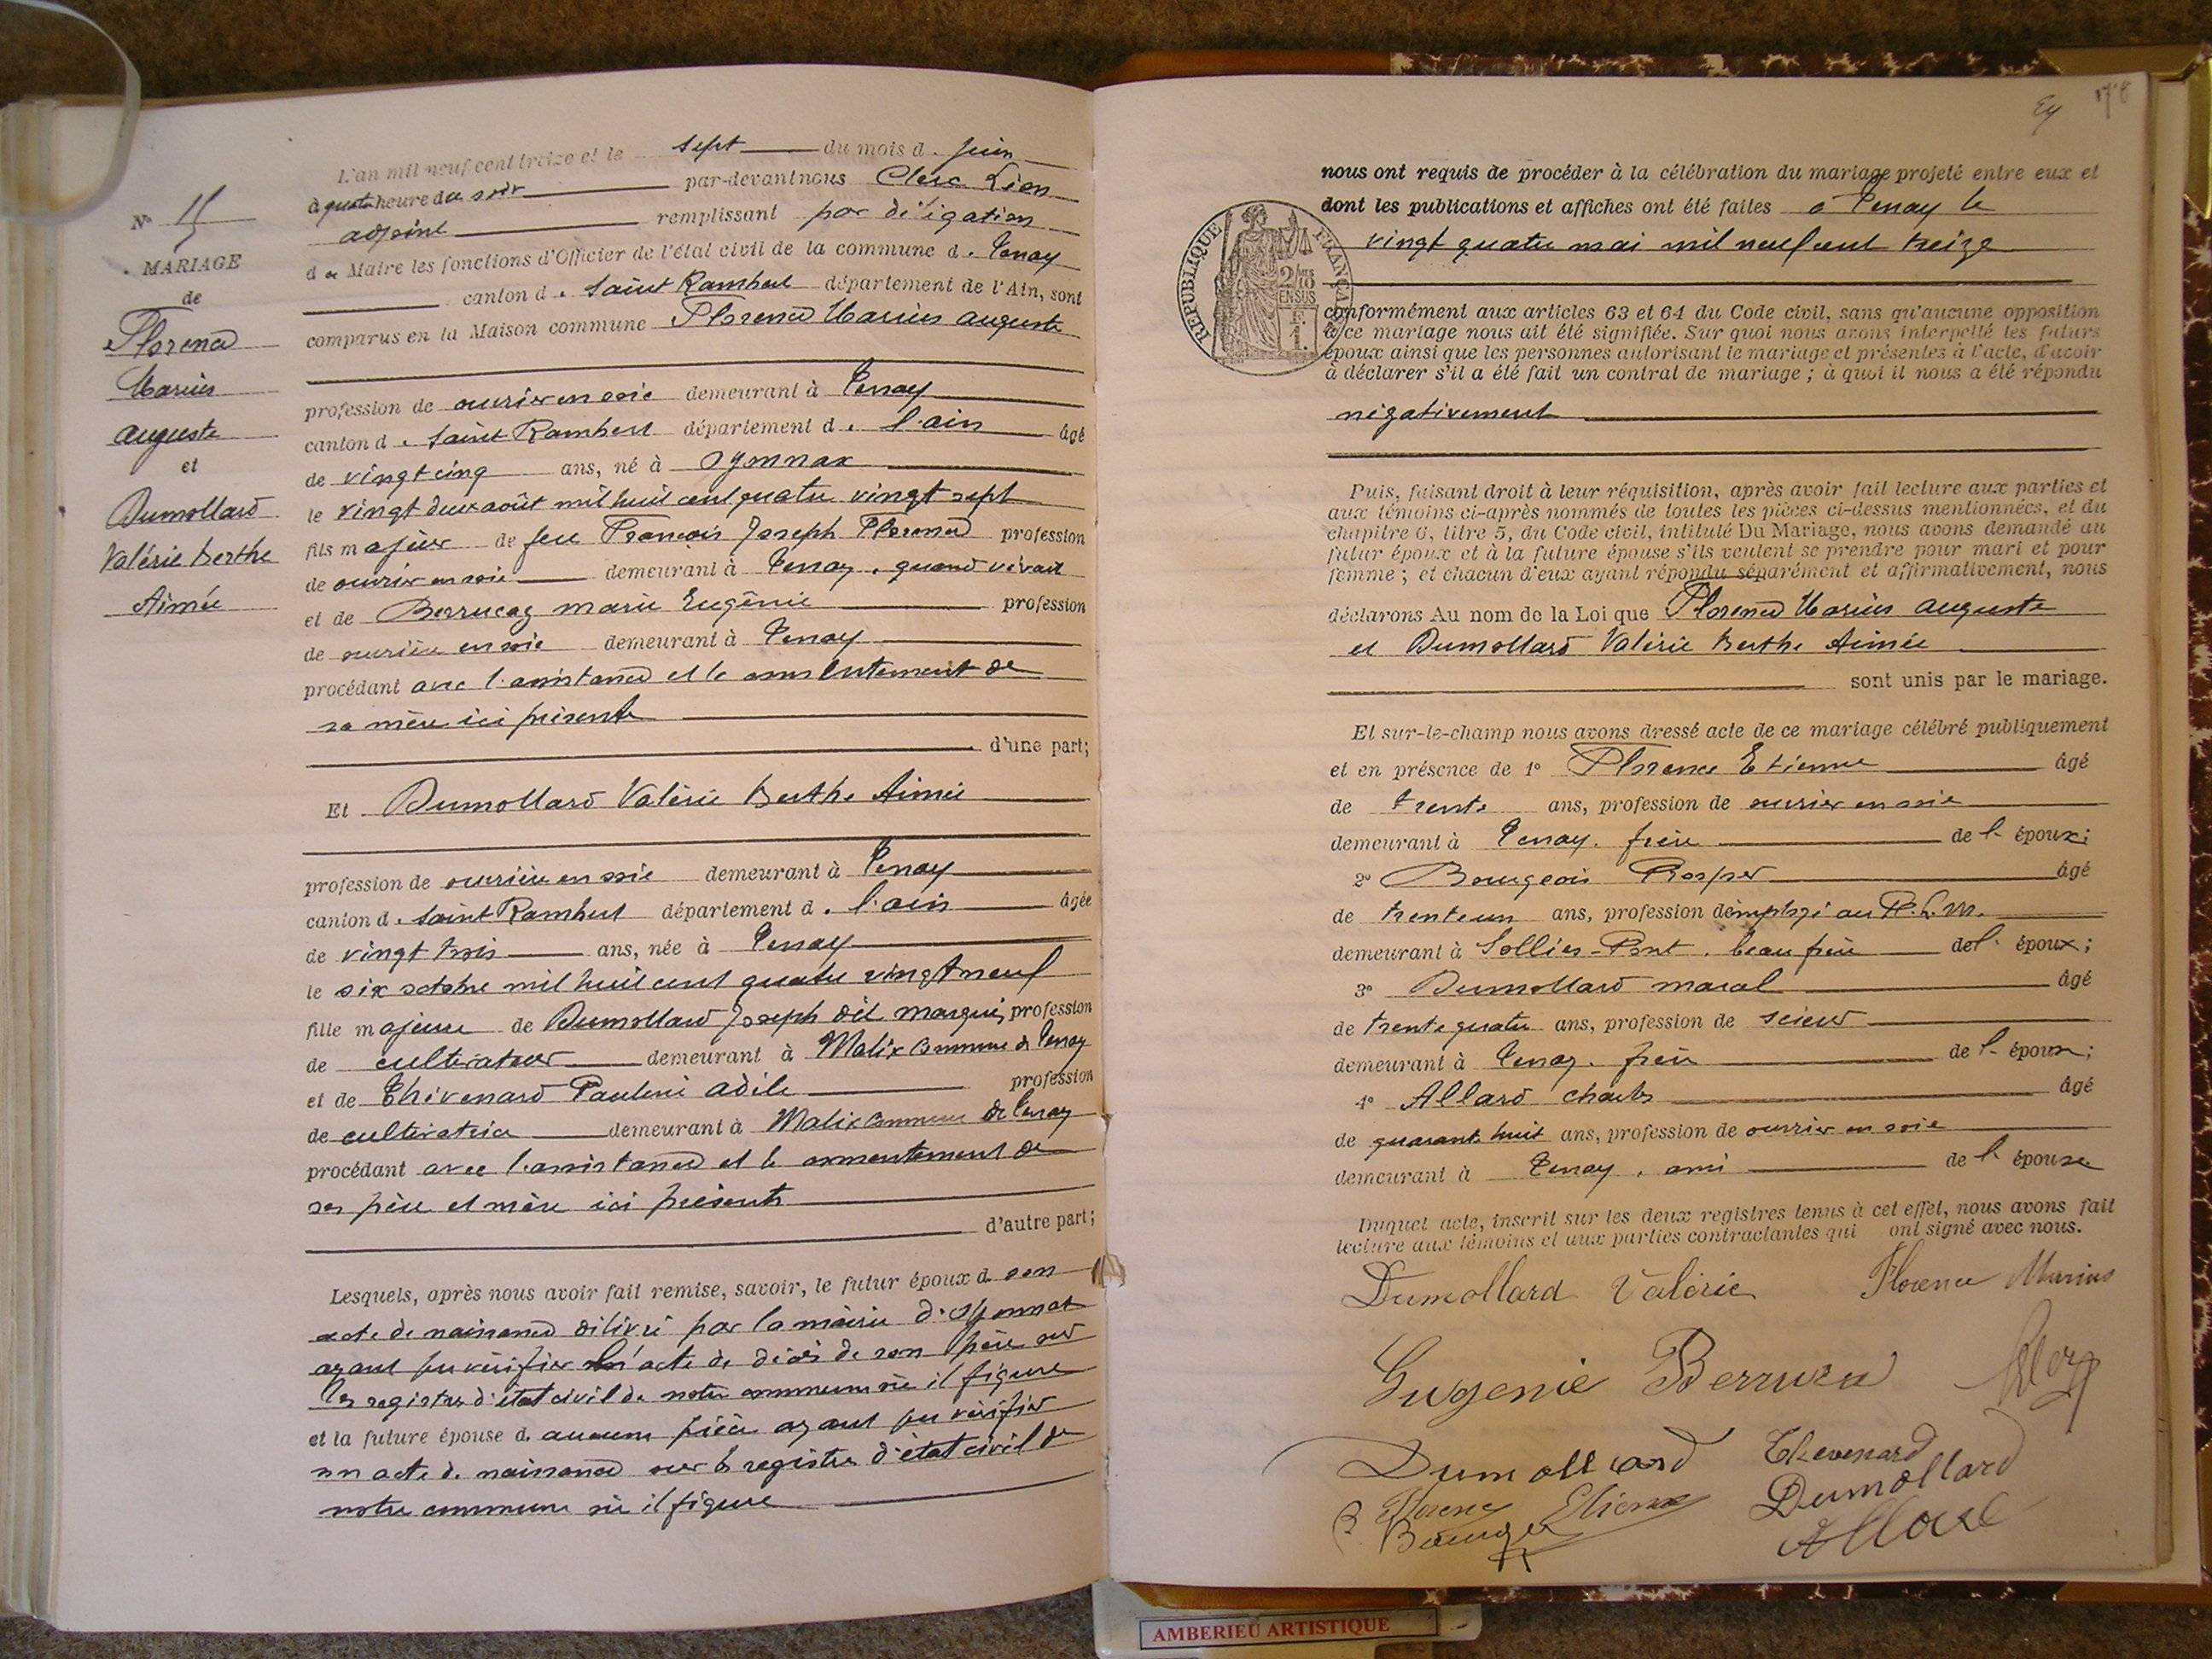 L'an mil neuf cent treize et le sept du mois d. juin
à quatre heure du soir par-devant nous Clerc Léon
adjoint remplissant par déligation
d u Maire les fonctions d'Officier de l'état civil de la commune d. Tenay
canton d. Saint Rambert département de l'Ain, sont
comparus en la Maison commune Florence Marius auguste
profession de ouvrier en soie demeurant à Tenay
canton d. Saint Rambert département d. l'ain âgé
de vingt cinq ans, né à Oyonnax
le vingt deux août mil huit cent quatre vingt sept
fils majeur de feu François Joseph Florence profession
de ouvrier en soie demeurant à Tenay, quand vivait
et de marie Eugénie profession
de ouvrière en soie demeurant à Tenay
procédant avec l'assistance et le consentement de
sa mère ici présente
d'une part;
Et Dumollard Valérie Berthe Aimée
profession de ouvrière en soie demeurant à Tenay
canton d. Saint Rambert département d. l'ain âgée
de vingt trois ans, née à Tenay
le six octobre mil huit cent quatre vingt neuf
fille majeure de Dumollard Joseph dit marquis profession
de cultivateur demeurant à Malix commune de Tenay
et de Thévenard Pauline adèle profession
de cultivatrice demeurant à Malix commune de Tenay
procédant avec l'assistance et le consentement de
ses père et mère ici présents
d'autre part;
Lesquels, après nous avoir fait remise, savoir, le futur époux d. son
acte de naissance délivré par la mairie d'Oyonnax
ayant pu vérifier l'acte de décès de son père sur
les registres d'état civil de notre commune où il figure
et la future épouse d. aucune pièce ayant pu vérifier
son acte de naissance sur le registre d'état civil de
notre commune où il figure
N° 15
MARIAGE
de
Florence
Marius
auguste
et
Dumollard
Valérie Berthe
Aimée
178
nous ont requis de procéder à la célébration du mariage projeté entre eux et
dont les publications et affiches ont été faites à Tenay le
vingt quatre mai mil neuf cent treize
RÉPUBLIQUE FRANÇAISE
conformément aux articles 63 et 64 du Code civil, sans qu'aucune opposition
à ce mariage nous ait été signifiée. Sur quoi nous avons interpellé les futurs
époux ainsi que les personnes autorisant le mariage et présentes à l'acte, d'avoir
à déclarer s'il a été fait un contrat de mariage ; à quoi il nous a été répondu
négativement
Puis, faisant droit à leur réquisition, après avoir fait lecture aux parties et
aux témoins ci-après nommés de toutes les pièces ci-dessus mentionnées, et du
chapitre 6, titre 5, du Code civil, intitulé Du Mariage, nous avons demandé au
futur époux et à la future épouse s'ils veulent se prendre pour mari et pour
femme ; et chacun d'eux ayant répondu séparément et affirmativement, nous
déclarons Au nom de la Loi que Florence Marius auguste
et Dumollard Valérie Berthe Aimée
sont unis par le mariage.
Et sur-le-champ nous avons dressé acte de ce mariage célébré publiquement
et en présence de 1° Florence Etienne âgé
de trente ans, profession de ouvrier en soie
demeurant à Tenay. frère de l. époux;
2° Bourgeois Prosper âgé
de trente un ans, profession d'employé au P. L. M.
demeurant à Sollies-Pont. beau frère de l. époux;
3° Dumollard maral âgé
de trente quatre ans, profession de scieur
demeurant à Tenay. frère de l. épouse;
4° Allard charles âgé
de quarante huit ans, profession de ouvrier en soie
demeurant à Tenay, ami de l. épouse
Duquel acte, inscrit sur les deux registres tenus à cet effet, nous avons fait
lecture aux témoins et aux parties contractantes qui ont signé avec nous.
Dumollard Valérie Florence Marius
Eugenie
Dumollard Thevenard
Florence Etienne Dumollard
Allard
AMBERIEU ARTISTIQUE